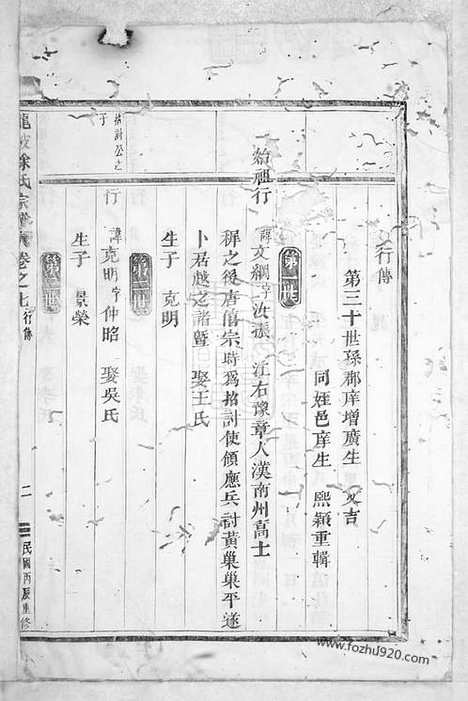 行傳
第三十世孫郡庠增廣生 又吉
同姪邑庠生 熙穎重輯
第一世
始祖行 諱文綱字汝張 江右豫章人漢南州高士
穉之後唐僖宗時爲招討使領應兵討黃巢巢平遂
卜居越之諸暨 娶王氏
生子 克明
第二世
招討公之子
行 諱克明字仲昭 娶吳氏
生子 景榮
第三世
徐氏宗譜 卷之七 行傳
二
民國丙辰重修
www.fozhu920.com